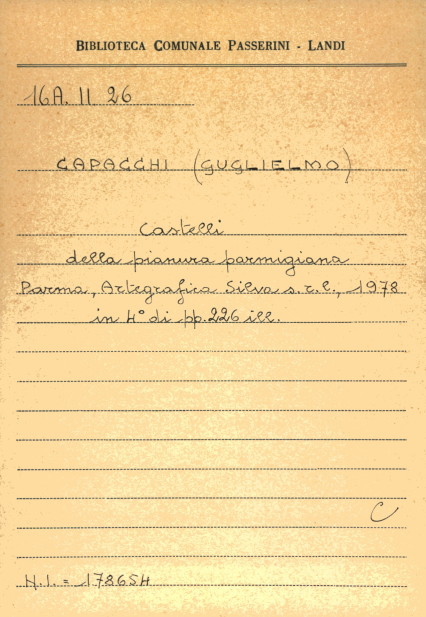 BIBLIOTECA COMUNALE PASSERINI - LANDI
16A. II. 26
CAPACCHI (GUGLIELMO)
Castelli
della pianura parmigiana
Parma, Artegrafica Silva s.r.l., 1978
in 4° di pp. 226 ill.
C
N.I. = 178654